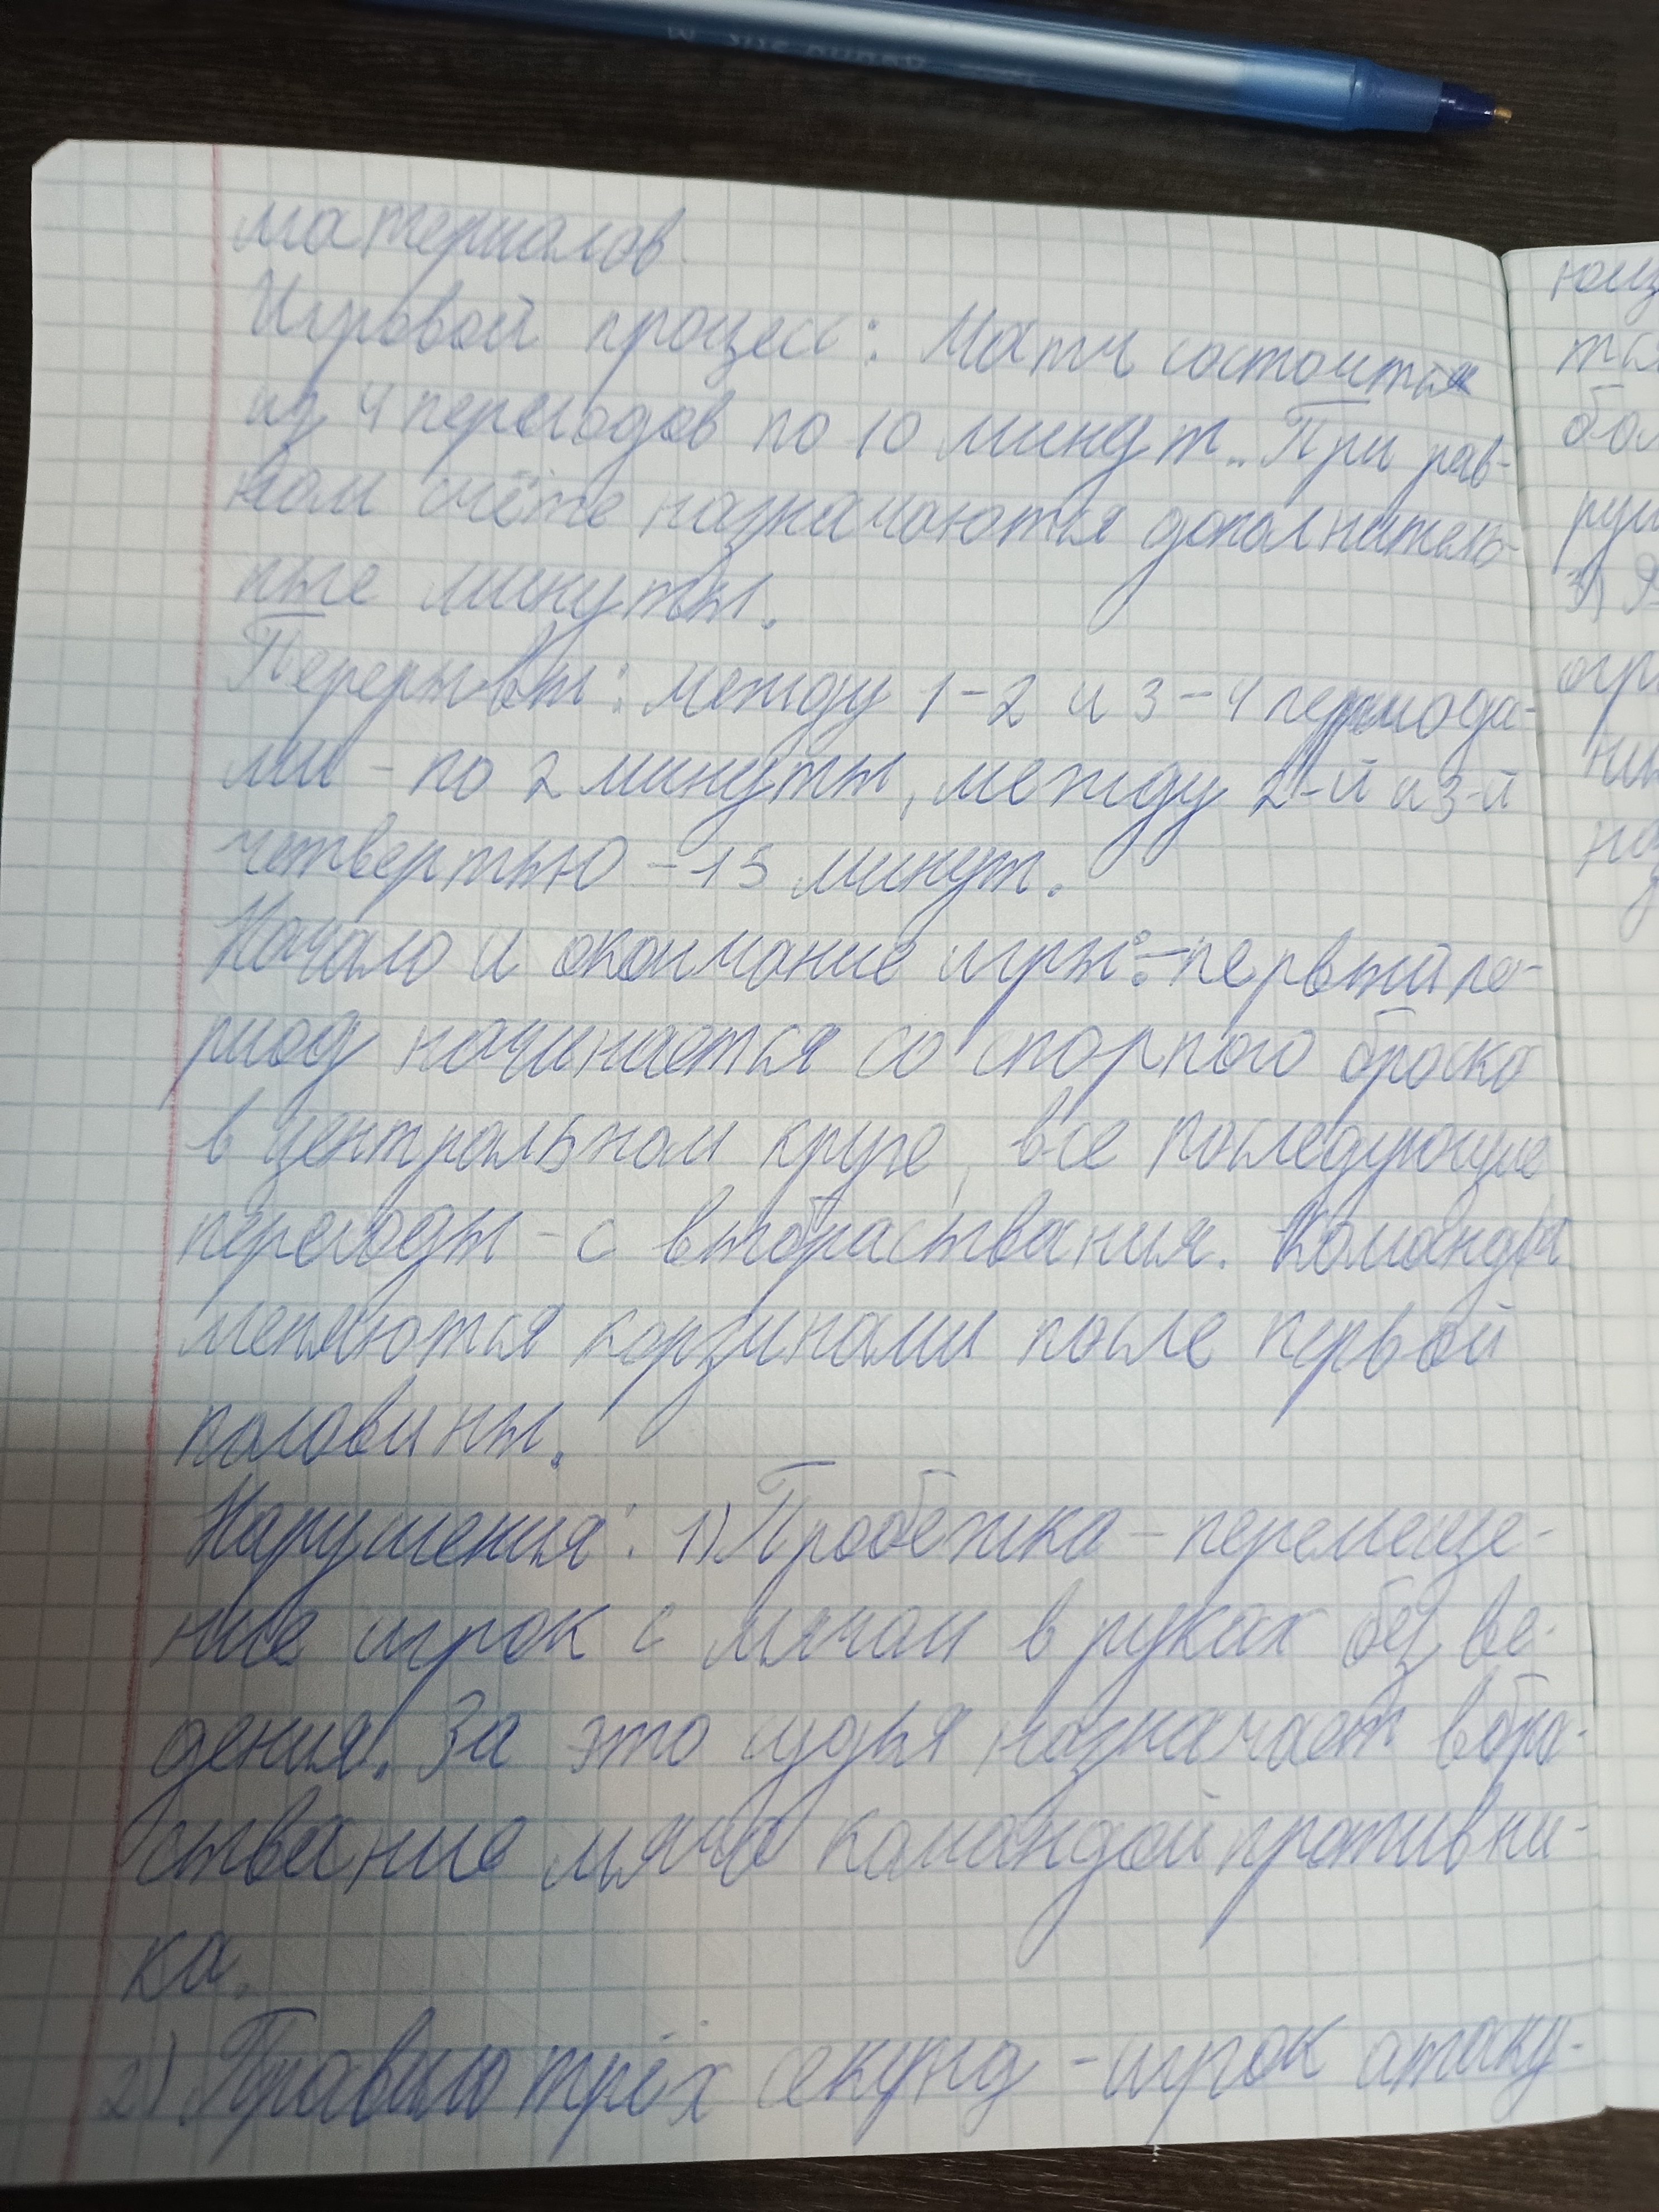 материалов.
Игровой процесс: Матч состоится
из 4 периодов по 10 минут.. При рав-
ном счёте назначаются дополнитель-
ные минуты.
Перерывы: между 1-2 и 3-4 периода-
ми - по 2 минуты, между 2-й и 3-й
четвертью - 15 минут.
Начало и окончание игры: - первый пе-
риод начинается со спорного броска
в центральном круге, все последующие
периоды - с выбрасывания. Команды
меняются корзинами после первой
половины.
Нарушения: 1) Пробежка - перемеще-
ние игрок с мячом в руках без ве-
дения. За это судья назначает вбра-
сывание мяча командой противни-
ка.
2) Правило трёх секунд - игрок атаку-